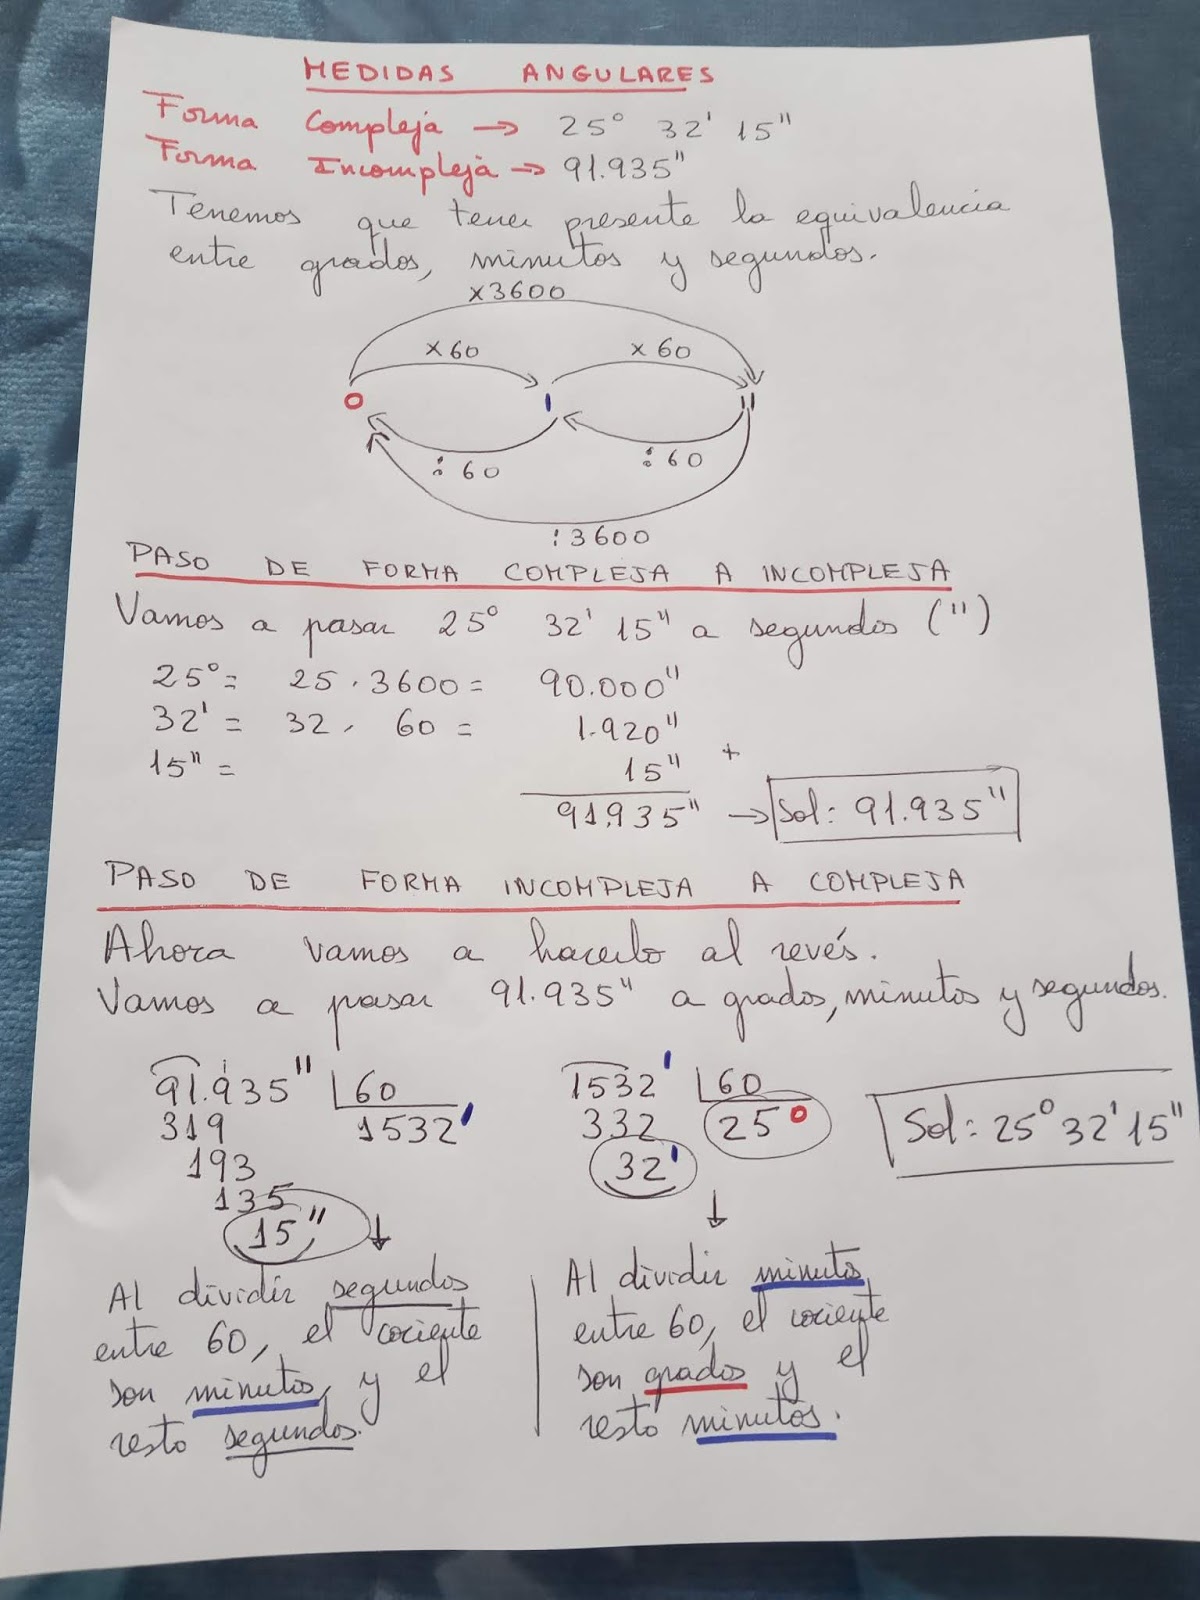 MEDIDAS ANGULARES
Forma Compleja → 25° 32' 15"
Forma Incompleja → 91.935"
Tenemos que tener presente la equivalencia
entre grados, minutos y segundos.
x3600
x60 x60
° ' "
:60 :60
:3600
PASO DE FORMA COMPLEJA A INCOMPLEJA
Vamos a pasar 25° 32' 15" a segundos (")
25° = 25 · 3600 = 90.000"
32' = 32 · 60 = 1.920"
15" = 15" +
91.935" → Sol: 91.935"
PASO DE FORMA INCOMPLEJA A COMPLEJA
Ahora vamos a hacerlo al revés.
Vamos a pasar 91.935" a grados, minutos y segundos.
91.935" 60 1532' 60
319 1532' 332 25° Sol: 25° 32' 15"
193 32'
135
15" ↓ ↓
Al dividir segundos
entre 60, el cociente
son minutos, y el
resto segundos.
Al dividir minutos
entre 60, el cociente
son grados y el
resto minutos.